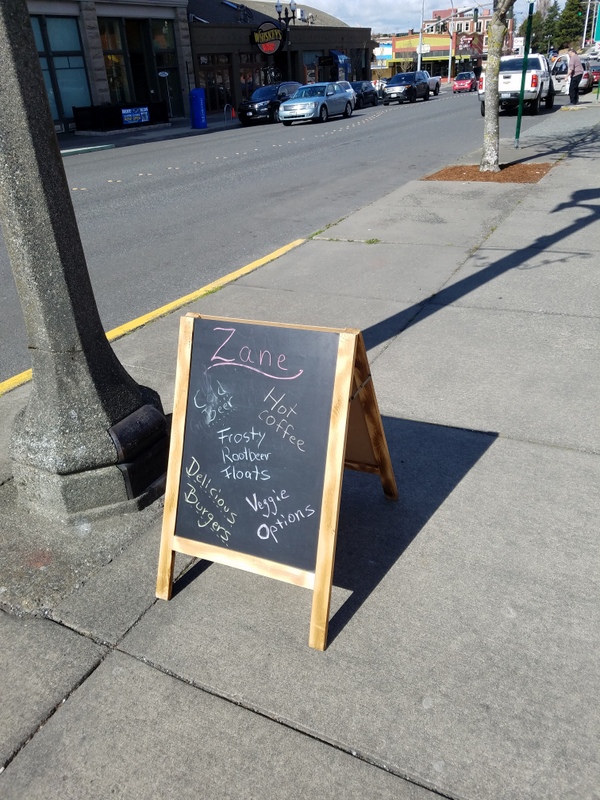 Zane
Cold
Beer
Hot
coffee
Frosty
Rootbeer
floats
Delicious
Burgers
Veggie
Options
WHISKEYS